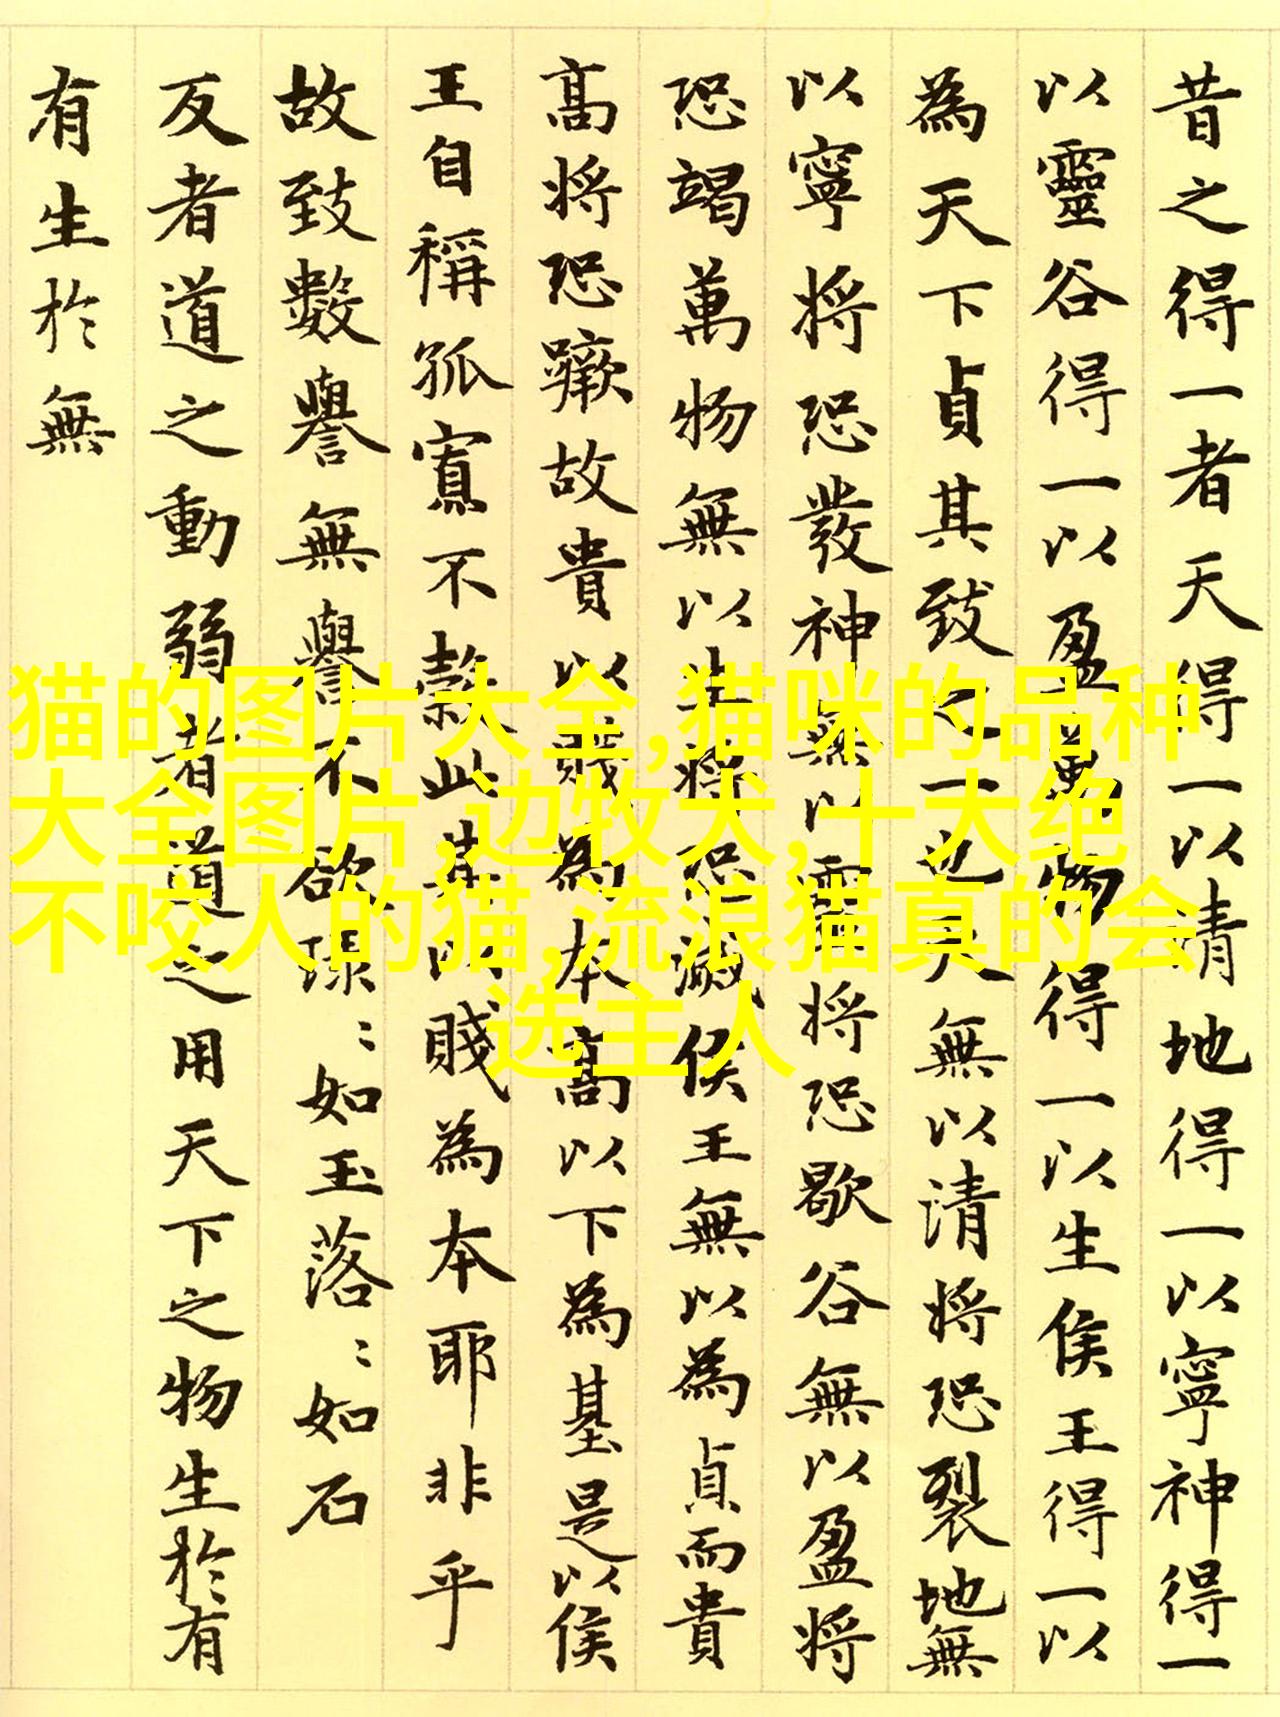 昔之得一者天得一以清地得一以寧神得一
以靈谷得一以盈萬物得一以生侯王得一以
為天下貞其致之一也天無以清將恐裂地無
以寧將恐發神無以靈將恐歇谷無以盈將
恐竭萬物無以生將恐滅侯王無以為貞而貴
高將恐蹶故貴以賤為本高以下為基是以侯
王自稱孤寡不穀此其以賤為本耶非乎
故致數譽無譽不欲琭〻如玉落〻如石
反者道之動弱者道之用天下之物生於有
有生於無
猫的图片大全,猫咪的品种
大全图片,边牧犬,十大绝
不咬人的猫,流浪猫真的会
选主人